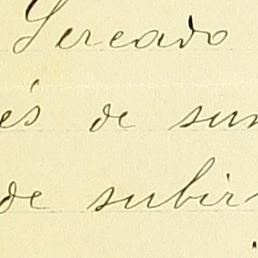 Sercado
és de sum
de subir